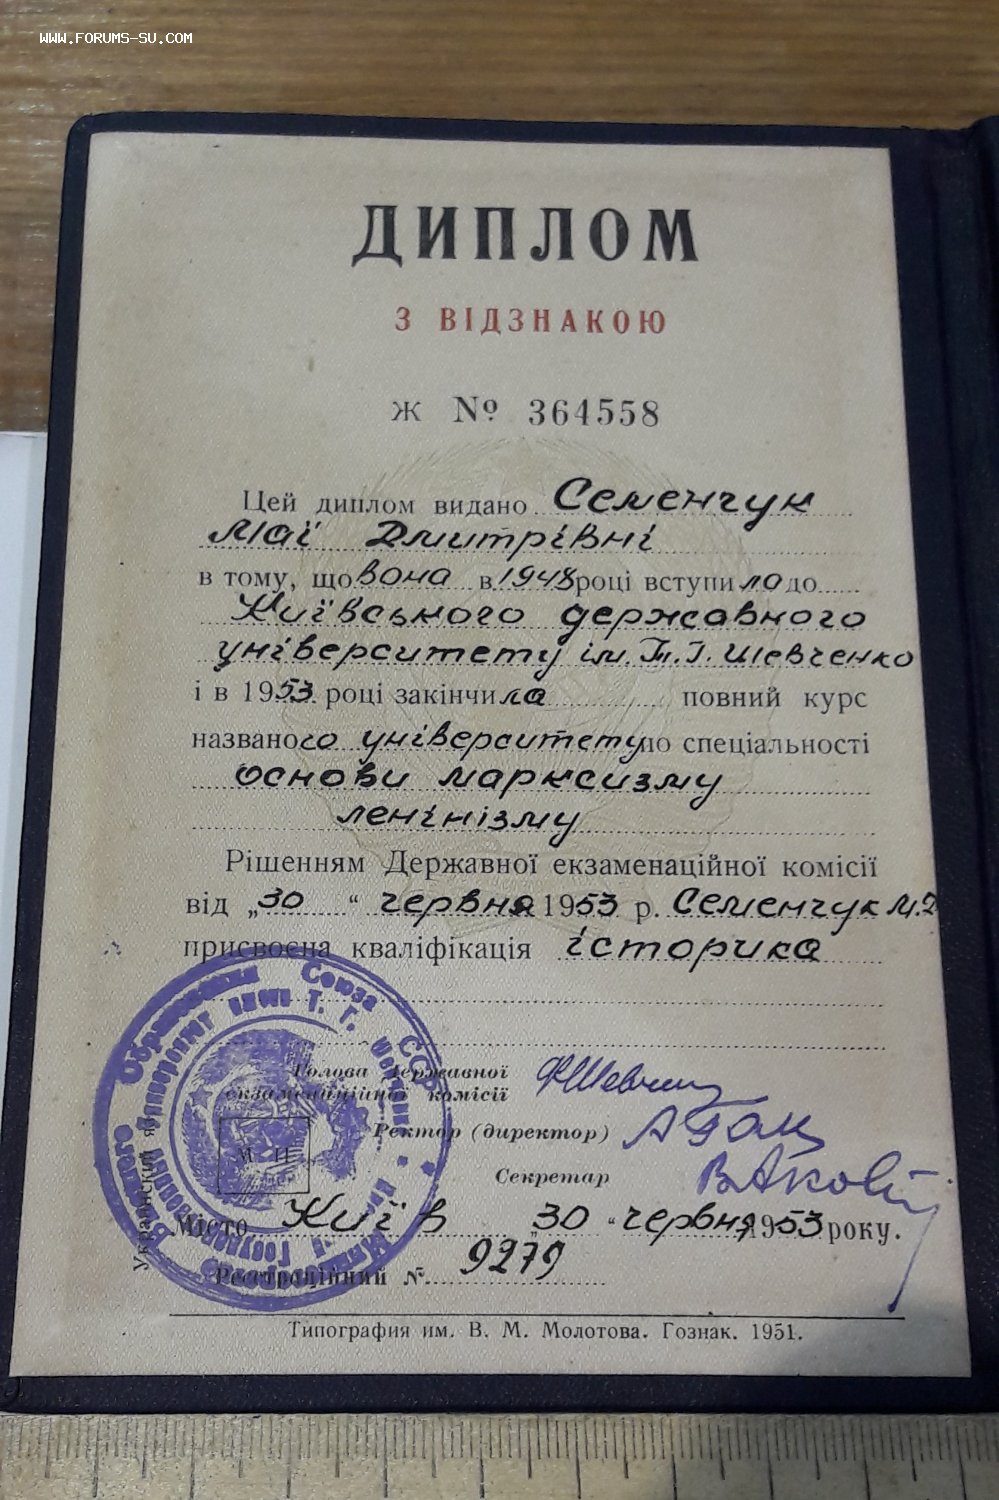 WWW.FORUMS-SU.COM
ДИПЛОМ
З ВІДЗНАКОЮ
Ж № 364558
Цей диплом видано Семенчук
Маї Дмитрівні
в тому, що вона в 1948 році вступила до
Київського державного
університету ім. Т.Г. Шевченко
і в 1953 році закінчила повний курс
названого університету по спеціальності
основи марксизму
ленінізму
Рішенням Державної екзаменаційної комісії
від „30“ червня 1953 р. Семенчук М.Д
присвоєна кваліфікація історика
Голова Державної
екзаменаційної комісії
Ректор (директор)
Секретар
М. П.
Місто Київ „30“ червня 1953 року.
Реєстраційний № 9279
Украинский яз.
Высшего Образования Союза ССР
Типография им. В. М. Молотова. Гознак. 1951.